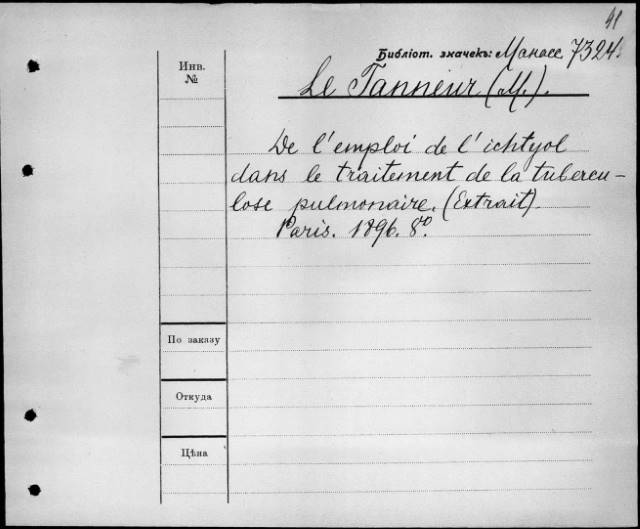 41
Библіот. значекъ: Манасс. 7324.
Инв.
№
Le Tanneur (M.).
De l'emploi de l'ichtyol
dans le traitement de la tubercu-
lose pulmonaire. (Extrait).
Paris. 1896. 8º.
По заказу
Откуда
Цѣна